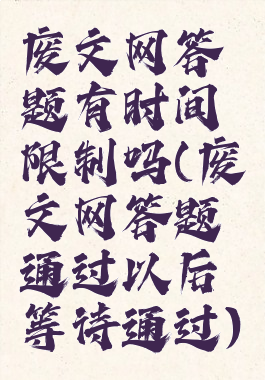 废文网答
题有时间
限制吗(废
文网答题
通过以后
等诗通过)